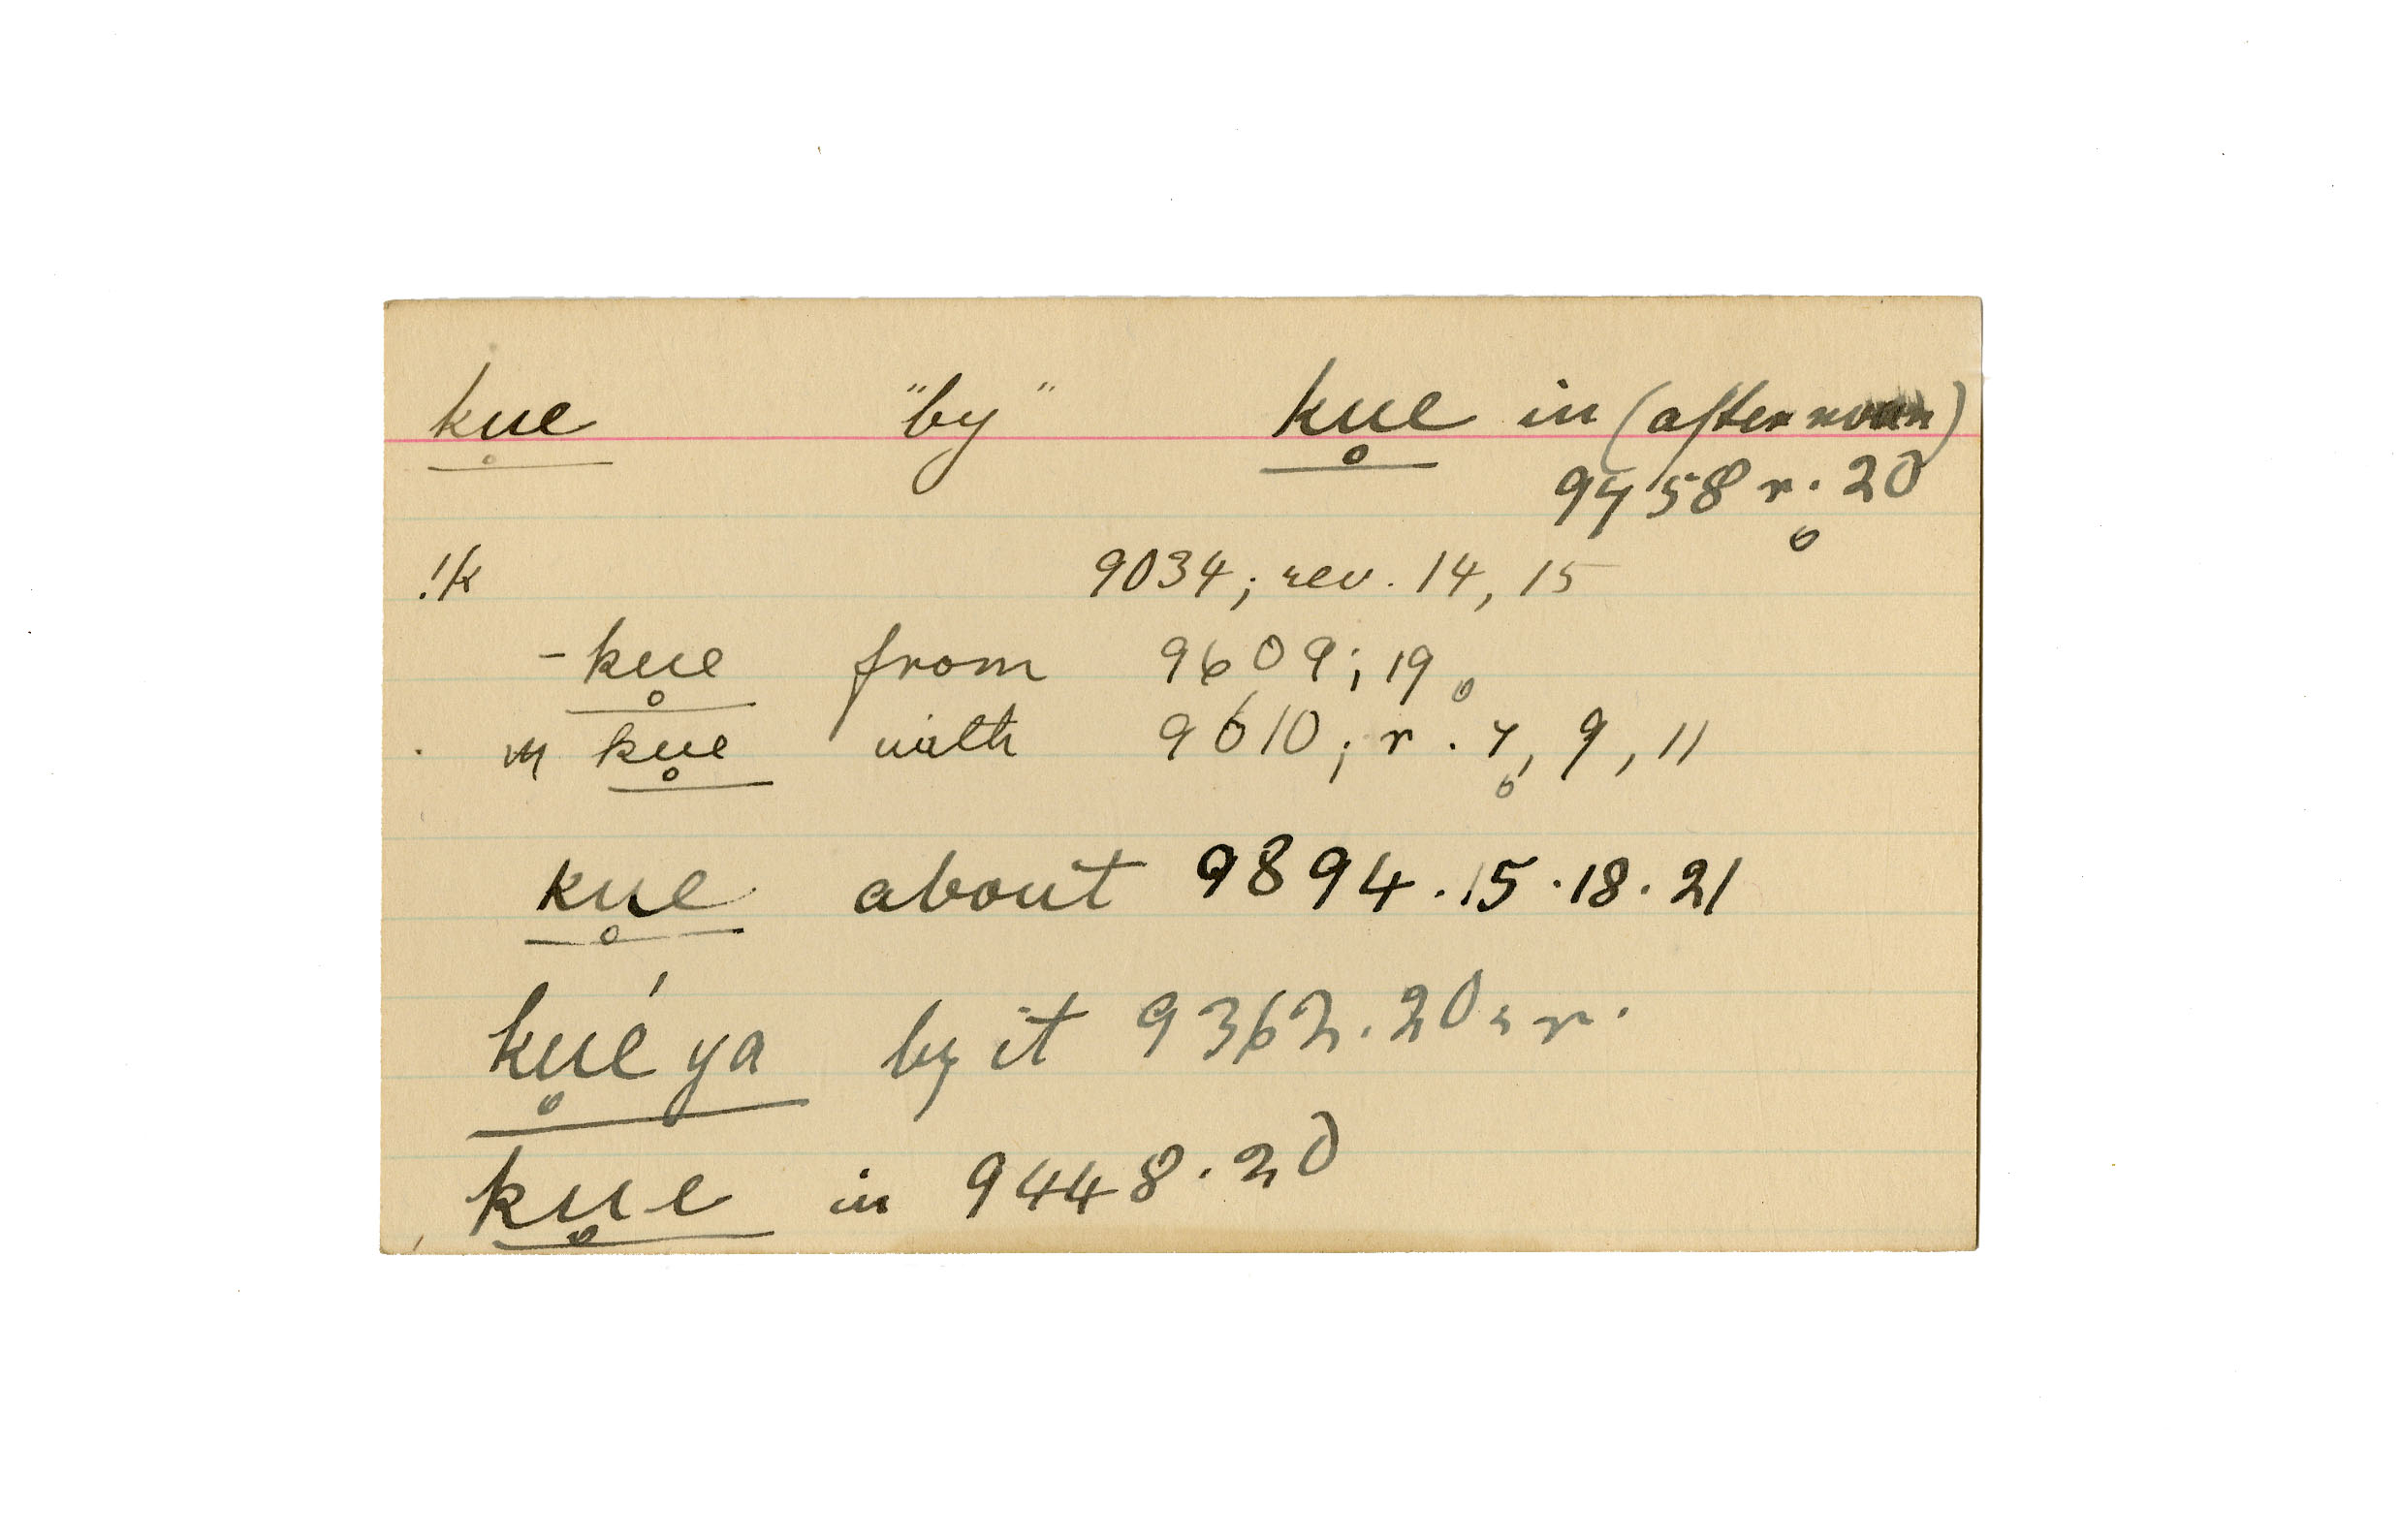 ku̥e "by" ku̥e in (afternoon)
9458 r. 20
!k 9034; rev. 14, 15
-ku̥e from 9609; 19
ku̥e with 9610; r. 7, 9, 11
ku̥e about 9894.15.18.21
ku̥é ya by it 9362.20 r.
ku̥e in 9448.20